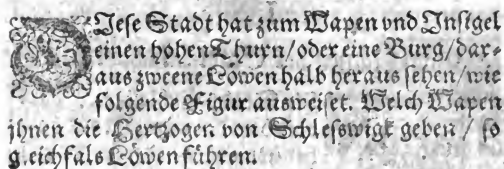 DIese Stadt hat zum Wapen vnd Insigel
einen hohen Thurn/oder eine Burg/dar-
aus zweene Löwen halb heraus sehen/wie
folgende Figur ausweiset. Welch Wapen
jhnen die Hertzogen von Schleswigk geben / so
gleichfals Löwen führen.